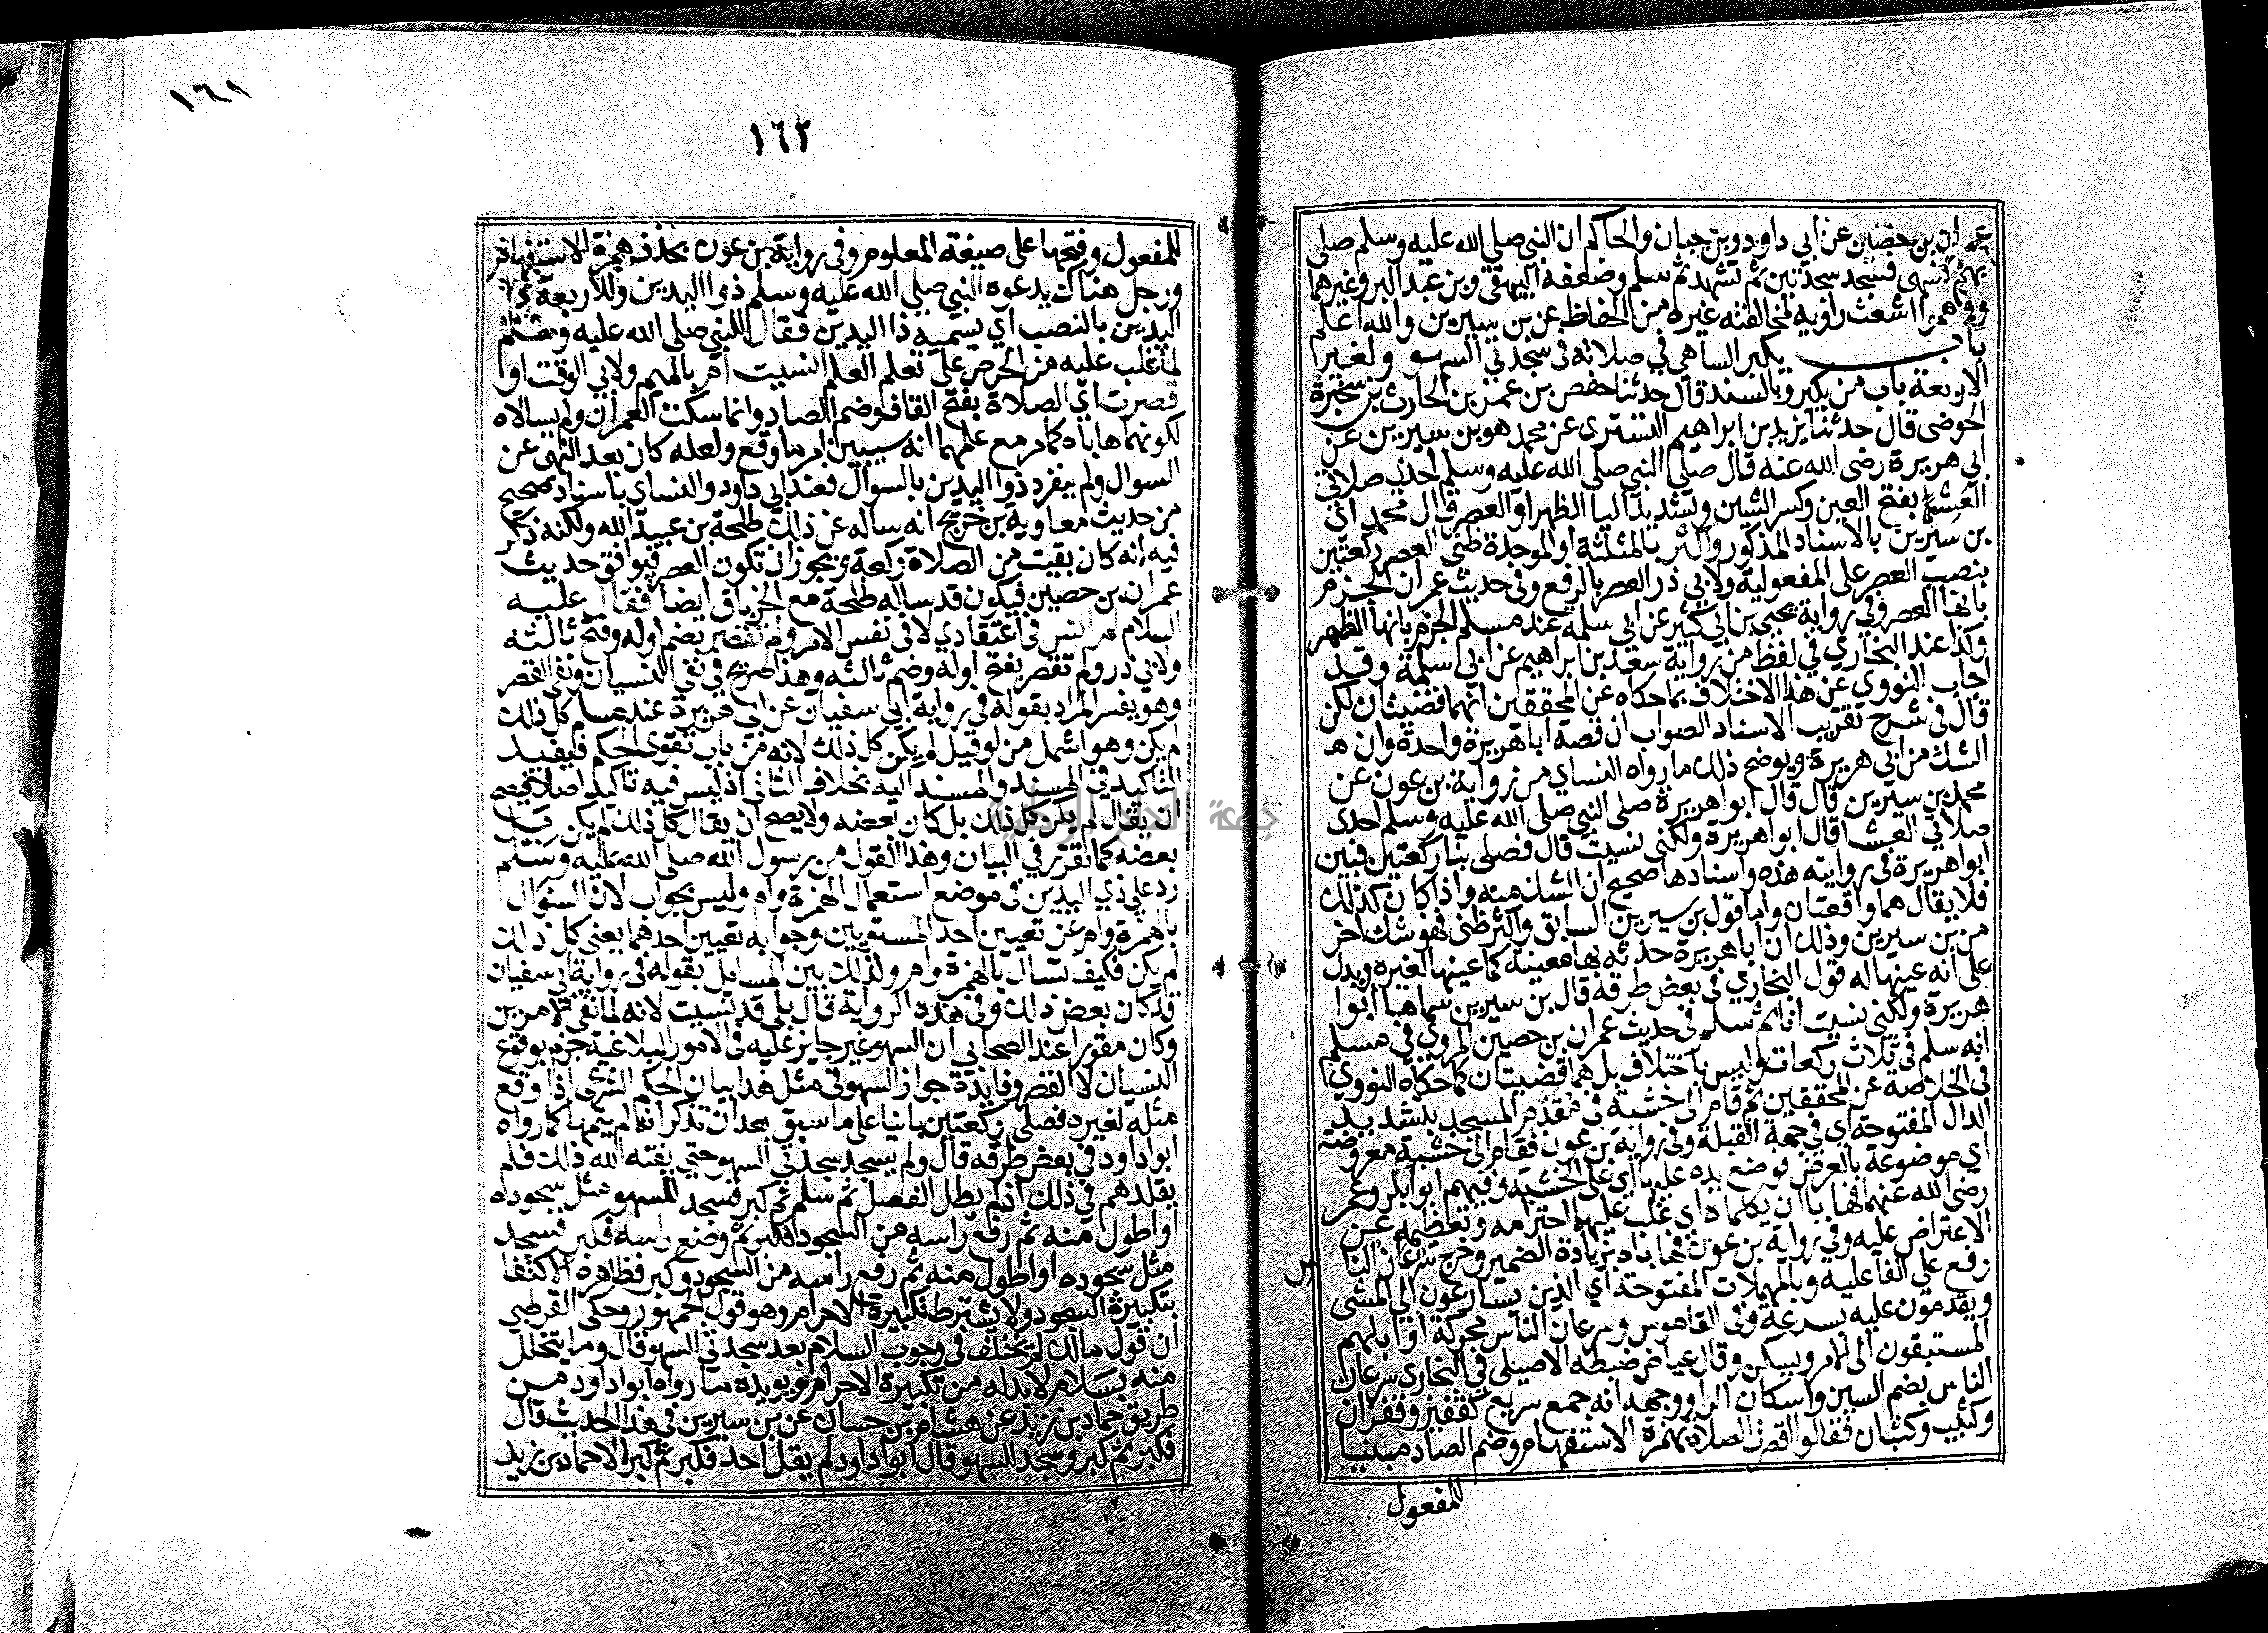 ١٦١
١٦٢
عمران بن حصين عن ابي داود وبن حبان والحاكم ان النبي صلي الله عليه وسلم صلي
بهم فسهى فسجد سجدتين ثم تشهد ثم سلم وضعفه البيهقي وبن عبد البر وغيرهما
ووهموا اشعث راويه لمخالفته غيره من الحفاظ عن بن سيرين والله اعلم
باب يكبر الساهي في صلاته في سجدتي السهو ولغير
الاربعة باب من يكبر وبالسند قال حدثنا حفص بن عمر بن الحارث بن سخبرة
الحوضي قال حدثنا يزيد بن ابراهيم التستري عن محمد هو بن سيرين عن
ابي هريرة رضي الله عنه قال صلي النبي صلي الله عليه وسلم احدي صلاتي
العشي بفتح العين وكسر الشين وتشديد اليا الظهر او العصر قال محمد اي
بن سيرين بالاسناد المذكور واكثر بالمثلثة او الموحدة ظني العصر ركعتين
بنصب العصر علي المفعولية ولابي ذر العصر بالرفع وفي حديث عمران الجزم
بانها العصر وفي رواية يحيي بن ابي كثير عن ابي سلمة عند مسلم الجزم بانها الظهر
وكذا عند البخاري في لفظ من رواية سعد بن ابراهيم عن ابي سلمة وقد
اجاب النووي عن هذا الاختلاف بما حكاه عن المحققين انهما قضيتان لكن
قال في شرح تقريب الاسناد الصواب ان قصة ابا هريرة واحدة وان
الشك من ابي هريرة ويوضح ذلك ما رواه النساي من رواية بن عون عن
محمد بن سيرين قال قال ابو هريرة صلي النبي صلي الله عليه وسلم احدي
صلاتي العشا قال ابو هريرة ولكني نسيت قال فصلي بنا ركعتين فبين
ابو هريرة في روايته هذه واسنادها صحيح ان الشك منه واذا كان كذلك
فلا يقال هما واقعتان واما قول بن سيرين السابق واكثر ظني فهو شك اخر
من بن سيرين وذلك ان ابا هريرة حدثه بها معينة كما عينها لغيره ويدل
علي انه عينها له قول البخاري في بعض طرقه قال بن سيرين سماها ابوا
هريرة ولكني نسيت انا ثم سلم في حديث عمران بن حصين المروي في مسلم
انه سلم في ثلاث ركعات وليس باختلاف بل هما قضيتان كما حكاه النووي
في الخلاصة عن المحققين ثم قام الي خشبة في مقدم المسجد بتشديد
الدال المفتوحة اي في جهة القبلة وفي رواية بن عون فقام الي خشبة معروضة
اي موضوعة بالعرض فوضع يده عليها اي علي الخشبة وفيهم ابو بكر وعمر
رضي الله عنهما فهابا ان يكلماه اي غلب عليهما احترامه وتعظيمه عن
الاعتراض عليه وفي رواية بن عون فهاباه بزيادة الضمير وخرج سرعان النا
س
رفع علي الفاعلية وبالمهملات المفتوحة اي الذين يسارعون الي المشي
ويقدمون عليه بسرعة وفي القاموس وسرعان الناس محركة اوايلهم
المستبقون الي الامر ويسكن وقال عياض ضبطه الاصيلي في البخاري سرعان
الناس بضم السين واسكان الرا ووجهه انه جمع سريع كقفيز وقفزان
وكثيب وكثبان فقالوا اقصرت الصلاة بهمزة الاستفهام وضم الصاد مبنيا
للمفعول
للمفعول وفتحها علي صيغة المعلوم وفي رواية بن عون بحذف همزة الاستفهام
ورجل هناك يدعوه النبي صلي الله عليه وسلم ذوا اليدين وللاربعة ذا
اليدين بالنصب اي يسميه ذا اليدين فقال للنبي صلي الله عليه وسلم
لما غلب عليه من الحرص علي تعلم العلم انسيت ام بالميم ولابي الوقت اوا
قصرت اي الصلاة بفتح القاف وضم الصاد وانما سكت العمران ولم يسالاه
لكونهما هاباه كما مر مع علمهما انه سيبين امر ما وقع ولعله كان بعد النهي عن
السوال ولم ينفرد ذوا اليدين بالسوال فعند ابي داود والنساي باسناد صحيح
من حديث معاوية بن خديج انه ساله عن ذلك طلحة بن عبيد الله ولكنه ذكر
فيه انه كان بقيت من الصلاة ركعة ويجوز ان تكون العصر فيوافق حديث
عمران بن حصين فيكون قد ساله طلحة مع الخرباق ايضا فقال عليه
السلام لم انس في اعتقادي لا في نفس الامر ولم تقصر بضم اوله وفتح ثالثه
ولابي ذر ولم تقصر بفتح اوله وضم ثالثه وهذا صريح في نفي النسيان ونفي القصر
وهو يفسر المراد بقوله في رواية ابي سفيان عن ابي هريرة عند مسلم كل ذلك
لم يكن وهو اشمل من لو قيل لم يكن كل ذلك لانه من باب تقوي الحكم فيفيد
التاكيد في المسند والمسند اليه بخلاف الثاني اذ ليس فيه تاكيد اصلا فيصح
ان يقال لم يكن كل ذلك بل كان بعضه ولا يصح ان يقال كل ذلك لم يكن بل
بعضه كما تقرر في البيان وهذا القول من رسول الله صلي الله عليه وسلم
رد علي ذي اليدين في موضع استعمال الهمزة وام وليس بجواب لان السوال
بالهمزة وام عن تعيين احد المستويين وجوابه تعيين احدهما يعني كل ذلك
لم يكن فكيف تسال بالهمزة وام ولذلك بين السايل بقوله في رواية ابي سفيان
قد كان بعض ذلك وفي هذه الرواية قال بلي قد نسيت لانه لما نفي الامرين
وكان مقررا عند الصحابي ان السهو غير جايز عليه في الامور البلاغية جزم بوقوع
النسيان لا القصر وفايدة جواز السهو في مثل هذا بيان الحكم الشرعي اذا وقع
مثله لغيره فصلي ركعتين بانيا علي ما سبق بعد ان تذكر انه لم يتمها كما رواه
ابوا داود في بعض طرقه قال ولم يسجد سجدتي السهو حتي يقنه الله ذلك فلم
يقلدهم في ذلك اذ لم يطل الفصل ثم سلم ثم كبر فسجد للسهو مثل سجوده
او اطول منه ثم رفع راسه من السجود فكبر ثم وضع راسه فكبر فسجد
مثل سجوده او اطول منه ثم رفع راسه من السجود وكبر فظاهره الاكتفا
بتكبيرة السجود ولا يشترط تكبيرة الاحرام وهو قول الجمهور وحكي القرطبي
ان قول مالك لم يختلف في وجوب السلام بعد سجدتي السهو قال وما يتحلل
منه بسلام لا بد له من تكبيرة الاحرام ويويده ما رواه ابوا داود من
طريق حماد بن زيد عن هشام بن حسان عن بن سيرين في هذا الحديث قال
فكبر ثم كبر وسجد للسهو قال ابوا داود لم يقل احد فكبر ثم كبر الا حماد بن زيد